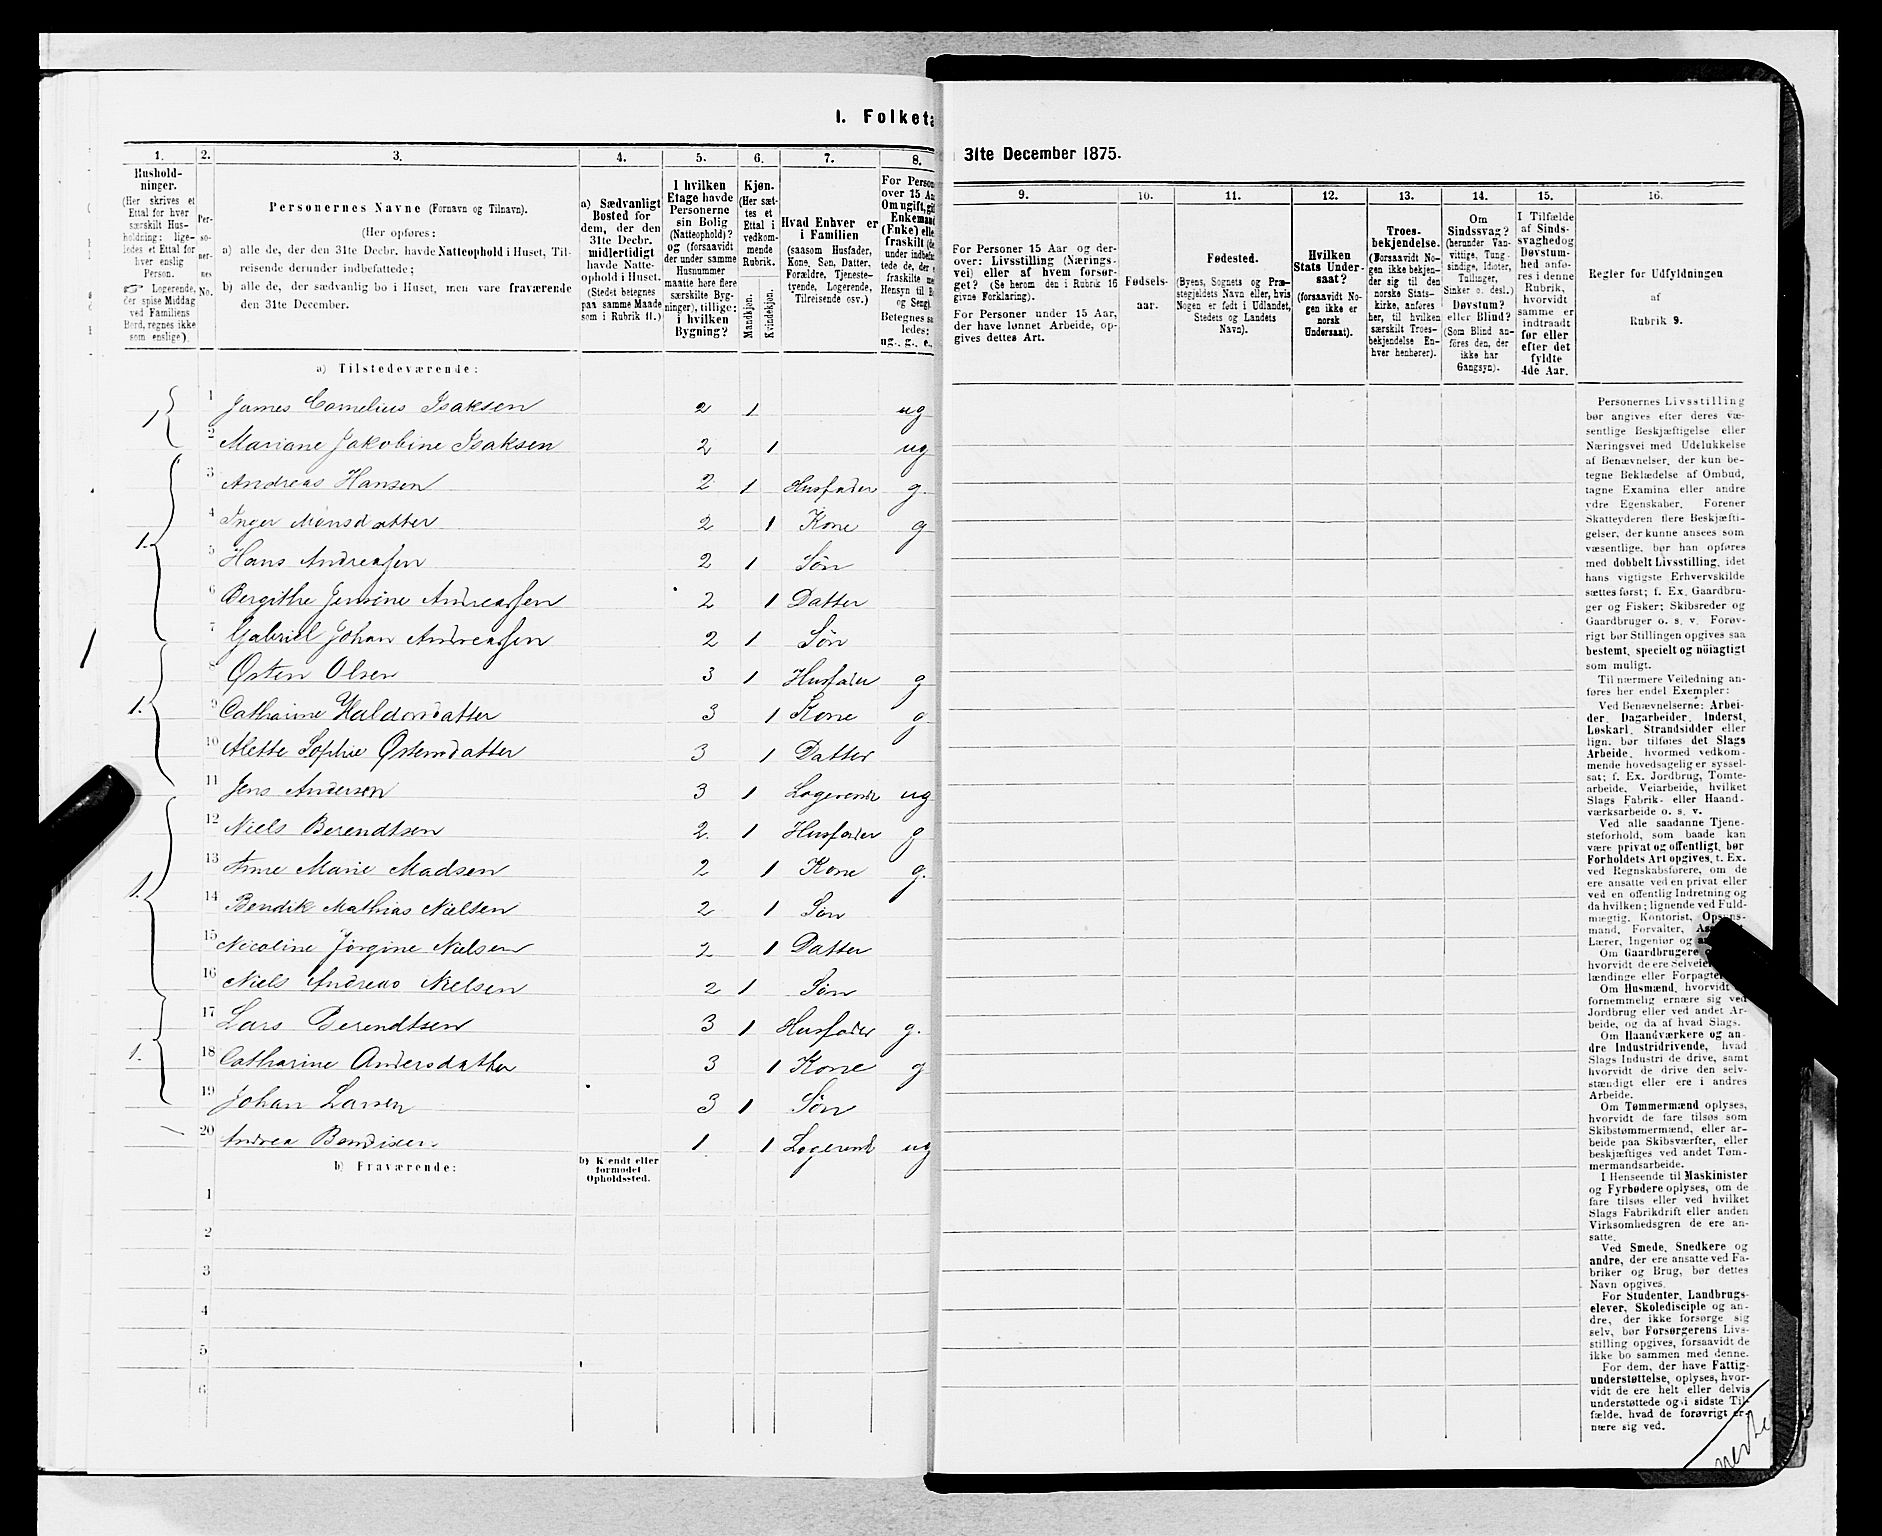 I. Folketa
1. 2. 3. 4. 5. 6. 7. 8.
Hushold-
ninger.
(Her skrives et
Ettal for hver
særskilt Hus-
holdning; lige-
ledes et Ettal for
hver enslig
Person.
☞ Logerende,
der spise Middag
ved Familiens
Bord, regnes ikke
som enslige).
Per-
so-
ner-
nes
No.
Personernes Navne (Fornavn og Tilnavn).
(Her opføres:
a) alle de, der den 31te Decbr. havde Natteophold i Huset, Til-
reisende derunder indbefattede;
b) alle de, der sædvanlig bo i Huset, men vare fraværende
den 31te December.
a) Sædvanligt
Bosted for
dem, der den
31te Decbr.
midlertidigt
havde Natte-
ophold i Huset.
(Stedet betegnes
paa samme Maade
som i Rubrik 11.)
I hvilken
Etage havde
Personerne
sin Bolig
(Natteophold)?
og (forsaavidt
der under samme
Husnummer
maatte høre flere
særskilte Byg-
ninger), tillige:
i hvilken
Bygning?
Kjøn.
(Her sæt-
tes et
Ettal i
vedkom-
mende
Rubrik.
Mandkjøn.
Kvindekjøn.
Hvad Enhver er
i Familien
(saasom Husfader,
Kone, Søn, Datter,
Forældre, Tjeneste-
tyende, Logerende,
Tilreisende osv.)
For Person
over 15 Aa
Om ugift, gi
Enkemand
(Enke) elle
fraskilt (de
under indbe
tede de, der e
fraskilte me
Hensyn til B
og Seng).
Betegnes sa
ledes:
ug., g., e.,
a) Tilstedeværende:
1 1 James Cornelius Isaksen 2 1 ug
2 Mariane Jakobine Isaksen 2 1 ug
3 Andreas Hansen 2 1 Husfader g.
4 Inger Monsdatter 2 1 Kone g
1. 5 Hans Andreassen 2 1 Søn
6 Bergithe Jensine Andreassen 2 1 Datter
7 Gabriel Johan Andreassen 2 1 Søn
8 Østen Olsen 3 1 Husfader g
1. 9 Catharine Haldorsdatter 3 1 Kone g
10 Alette Sophie Østensdatter 3 1 Datter
11 Jens Andersen 3 1 Logerende ug
12 Niels Berendtsen 2. 1 Husfader g
1. 13 Anne Marie Madsen 2 1 Kone g.
14 Bendik Mathias Nielsen 2 1 Søn
15 Nicoline Jørgine Nielsen 2 1 Datter
16 Niels Andreas Nielsen 2 1 Søn
17 Lars Berendtsen 3 1 Husfader g.
1. 18 Catharine Andersdatter 3 1 Kone g
19 Johan Larsen 3 1 Søn
20 Andrea Bendixen. 1. 1 Logerende ug
b) Fraværende:
b) Kjendt eller
formodet
Opholdssted.
1
2
3
4
5
6
31te December 1875.
9. 10. 11. 12. 13. 14. 15. 16.
For Personer 15 Aar og der-
over: Livsstilling (Nærings-
vei) eller af hvem forsør-
get? (Se herom den i Rubrik 16
givne Forklaring).
For Personer under 15 Aar,
der have lønnet Arbeide, op-
gives dettes Art.
Fødsels-
aar.
Fødested.
(Byens, Sognets og Præ-
stegjeldets Navn eller, hvis
Nogen er født i Udlandet,
Stedets og Landets
Navn).
Hvilken
Stats Under-
saat?
(forsaavidt No-
gen ikke er
norsk
Undersaat).
Troes-
bekjendelse.
(Forsaavidt No-
gen ikke bekjen-
der sig til den
norske Stats-
kirke, anføres
her, til hvilken
særskilt Troes-
bekjendelse En-
hver henhører).
Om
Sindssvag?
(herunder Van-
vittige, Tung-
sindige, Idioter,
Tullinger,
Sinker o. desl.)
Døvstum?
eller Blind?
(Som Blind an-
føres den, der
ikke har
Gangsyn).
I Tilfælde
af Sinds-
svaghed og
Døvstum-
hed anfø-
res i denne
Rubrik,
hvorvidt
samme er
indtraadt
før eller
efter det
fyldte
4de Aar.
Regler for Udfyldningen
af
Rubrik 9.
Personernes Livsstilling
bør angives efter deres væ-
sentlige Beskjæftigelse eller
Næringsvei med Udelukkelse
af Benævnelser, der kun be-
tegne Beklædelse af Ombud,
tagne Examina eller andre
ydre Egenskaber. Forener
Skatteyderen flere Beskjæfti-
gelser, der kunne ansees som
væsentlige, bør han opføres
med dobbelt Livsstilling, idet
hans vigtigste Erhvervskilde
sættes først; f. Ex. Gaardbru-
ger og Fisker; Skibsreder og
Gaardbruger o. s. v. Forøv-
rigt bør Stillingen opgives saa
bestemt, specielt og nöiagtigt
som muligt.
Til nærmere Veiledning an-
føres her endel Exempler:
Ved Benævnelserne: Arbei-
der, Dagarbeider, Inderst,
Løskarl, Strandsidder eller
lign. bør tilføies det Slags
Arbeide, hvormed vedkom-
mende hovedsagelig er syssel-
sat; f. Ex. Jordbrug, Tomte-
arbeide, Veiarbeide, hvilket
Slags Fabrik- eller Haand-
værksarbeide o. s. v.
Ved alle saadanne Tjene-
steforhold, som baade kan
være privat og offentligt, bør
Forholdets Art opgives, t. Ex.
ved Regnskabsførere, om de
ere ansatte ved en privat eller
ved en offentlig Indretning og
da hvilken; lignende ved Fuld-
mægtig, Kontorist, Opsyns-
mand, Forvalter,
Lærer, Ingeniør og
Om Gaardbrugere
hvorvidt de ere Selveier
lændinge eller Forpagter
Om Husmænd, hvorvidt
fornemmelig ernære sig ved
Jordbrug eller ved andet Ar-
beide, og da af hvad Slags.
Om Haandværkere og an-
dre Industridrivende, hvad
Slags Industri de drive, samt
hvorvidt de drive den selv-
stændigt eller ere i andres
Arbeide.
Om Tømmermænd oplyses,
hvorvidt de fare tilsøs som
Skibstømmermænd, eller ar-
beide paa Skibsværfter, eller
beskjæftiges ved andet Tøm-
mermandsarbeide.
I Henseende til Maskinister
og Fyrbødere oplyses, om de
fare tilsøs eller ved hvilket
Slags Fabrikdrift eller anden
Virksomhedsgren de ere an-
satte.
Ved Smede, Snedkere og
andre, der ere ansatte ved Fa-
briker og Brug, bør dettes
Navn opgives.
For Studenter, Landbrugs-
elever, Skoledisciple og an-
dre, der ikke forsørge sig
selv, bør Forsørgerens Livs-
stilling opgives, forsaavidt de
ikke bo sammen med denne.
For dem, der have Fattig-
understøttelse, oplyses, hvor-
vidt de ere helt eller delvis
understøttede og i sidste Til-
fælde, hvad de forøvrigt er-
nære sig ved.